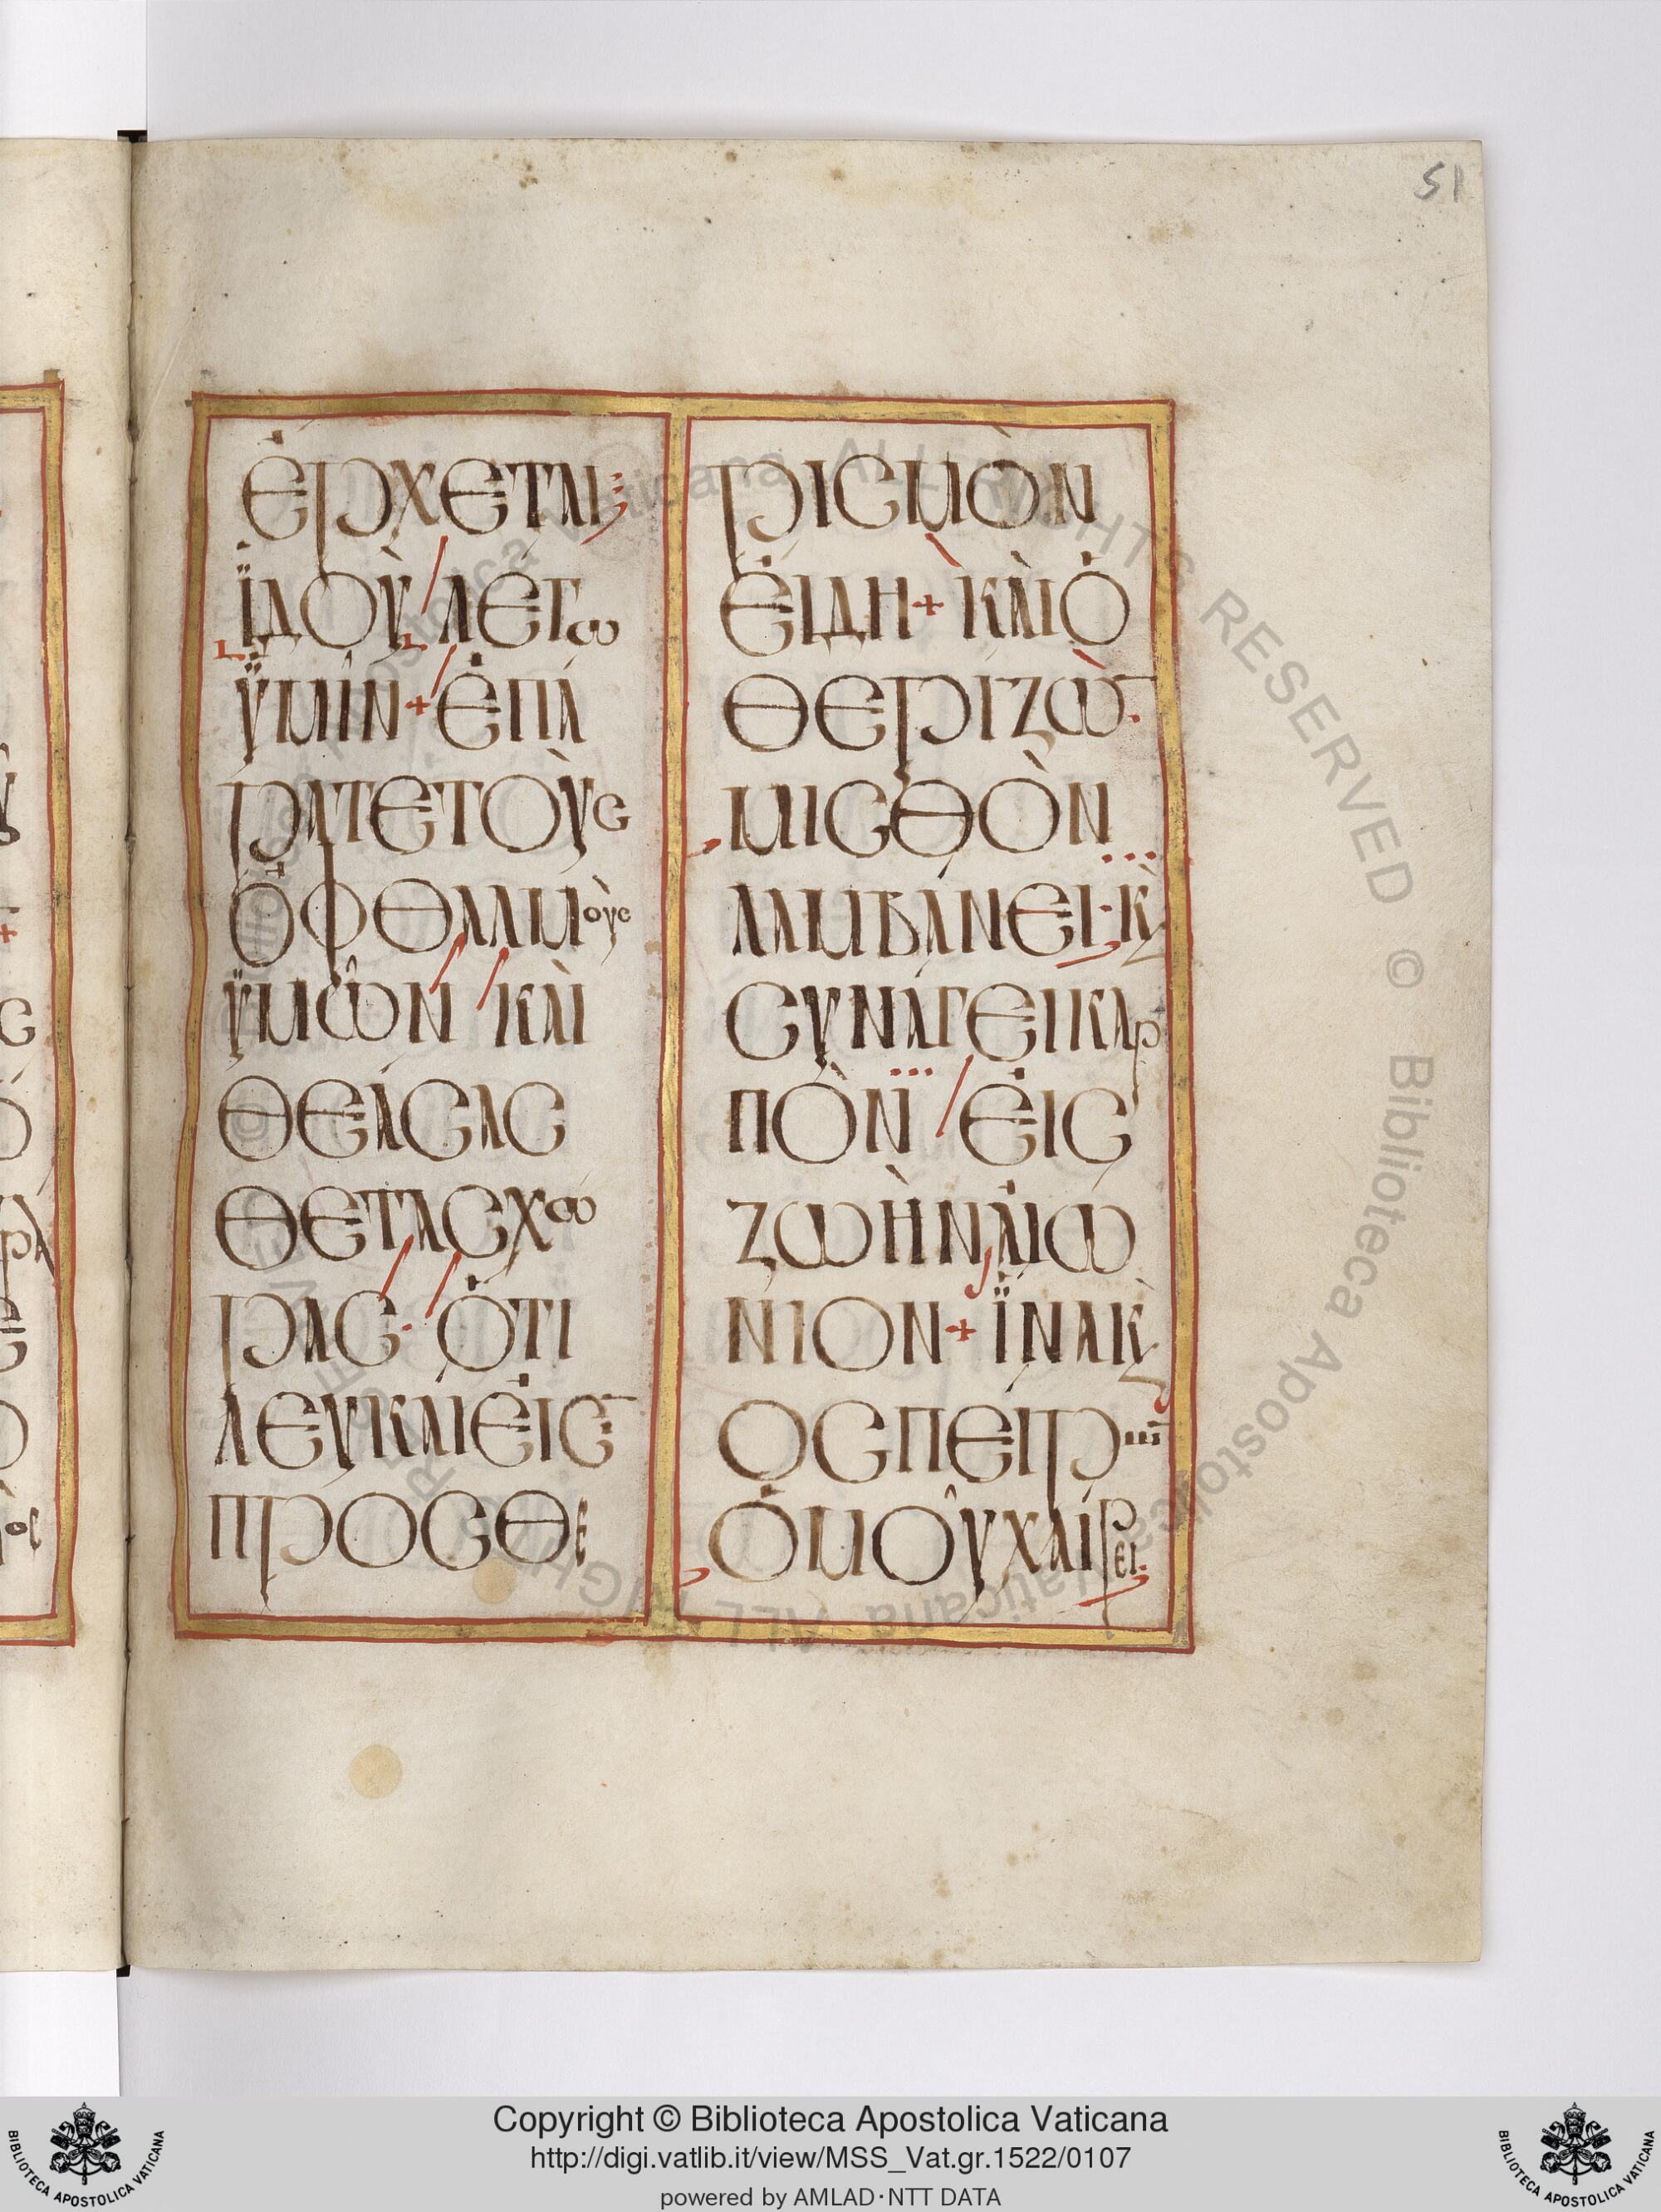 51
ἘΡΧΕΤΑΙ
ΪΔΟῪ ΛΕΓω
ΫΜΙΝ + ἘΠΑ
ΡΑΤΕΤΟῪς
ὈΦΘΑΛΜοὺς
ΫΜῶΝ ΚΑῚ
ΘΕΆСΑС
ΘΕΤΑСΧώ
ΡΑС· ὉΤΙ
ΛΕΥΚΑΙΕἸС
ΠΡΟСΘε
ΡΙСΜῸΝ
ἘΙΔΗ + ΚΑῚὉ
ΘΕΡΙΖῺ
ΜΙСΘῸΝ
ΛΑΜΒΆΝΕΙ· Κ̀
СΥΝΆΓΕΙΚΑρ
ΠῸΝ ἘΙС
ΖΩῊΝΑἸΩ
ΝΙΟΝ + ΪΝΑΚ̀
ΟСΠΕΊΡω
ὉΜΟῦΧΑΊΡει·
Copyright © Biblioteca Apostolica Vaticana
http://digi.vatlib.it/view/MSS_Vat.gr.1522/0107
powered by AMLAD·NTT DATA
BIBLIOTECA APOSTOLICA VATICANA
BIBLIOTECA APOSTOLICA VATICANA
© Biblioteca Apostolica Vaticana ALL RIGHTS RESERVED